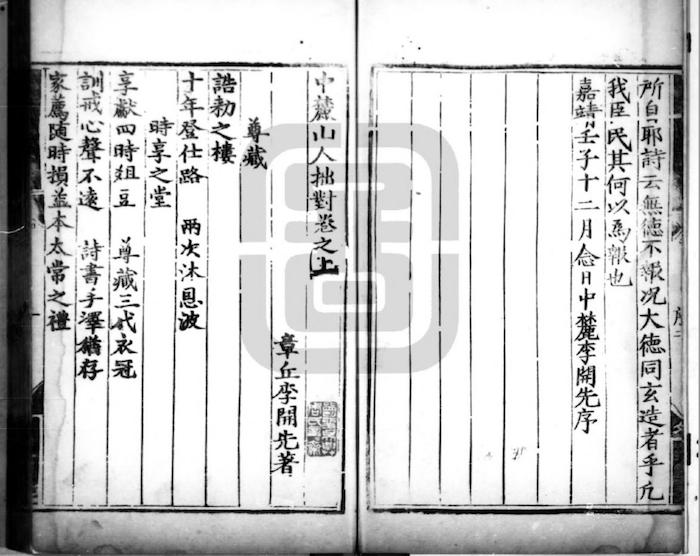 所自耶詩云無德不報况大德同玄造者乎凡
我臣民其何以為報也
嘉靖壬子十二月念日中麓李開先序
序二
中麓山人拙對卷之上
章丘李開先著
尊藏
誥勅之樓
十年登仕路　兩次沐恩波
時享之堂
享獻四時俎豆　尊藏三代衣冠
訓戒心聲不遠　詩書手澤猶存
家薦随時損益本太常之禮